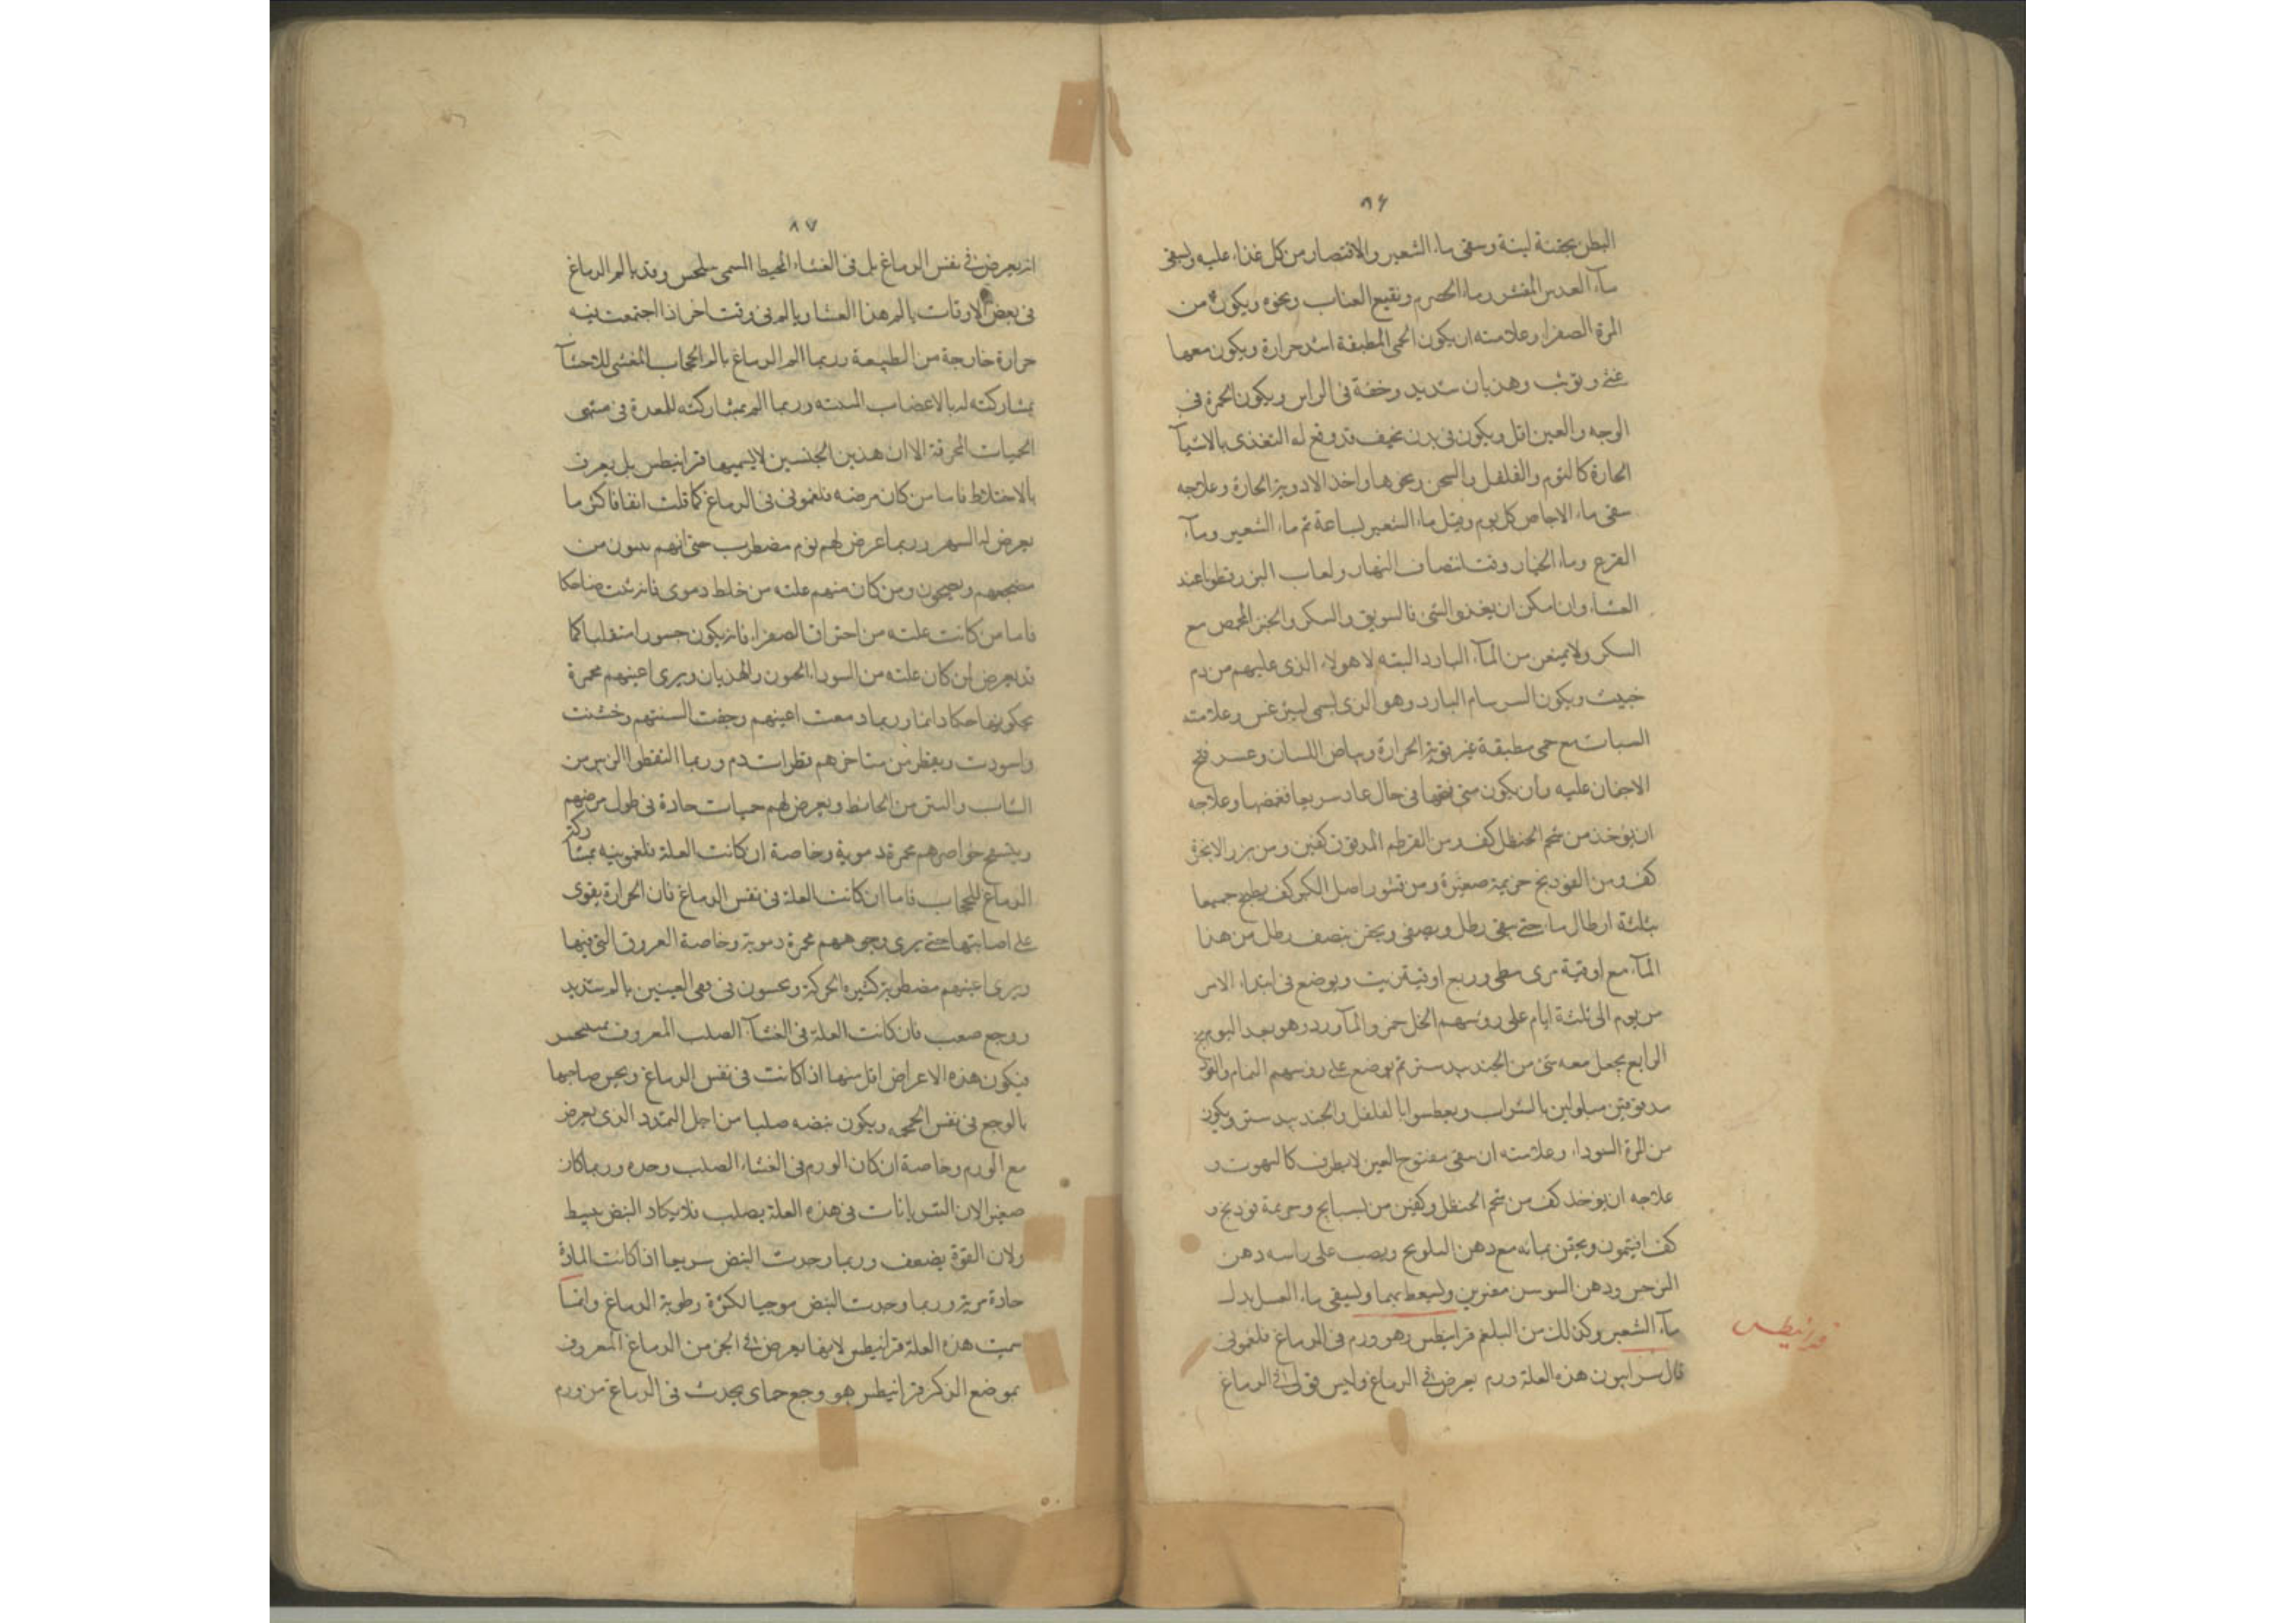 ٨٦
البطن بحقنة لينة وسقى ماء الشعير والاقتصار من كل غذاء عليه وليسقى
ماء العدس المقشر وماء الحصرم ونقيع العناب ونحوه ويكون من
المرة الصفراء وعلامته ان يكون الحمى المطبقة اشد حرارة ويكون معها
غثى وتوثب وهذيان شديد وخفة فى الراس ويكون الحمرة فى
الوجه والعين اقل ويكون فى بدن نحيف قد وقع له التغذى بالاشيآ
الحارة كالثوم والفلفل ونحوها واخذ الادوية الحارة وعلاجه
سقى ماء الاجاص كل يوم وقبل ماء الشعير بساعة ثم ماء الشعير ومآء
القرع وماء الخيار وقت انتصاف النهار ولعاب البزرقطونا عند
العشاء وان امكن ان يغذوا لشى فالسويق والسكر والخبز المحمص مع
السكر ولا يمنعن من المآء البارد البته لا هولاء الذى عليهم من دم
خبيث ويكون السرسام البارد وهو الذى يسمى ليثرغس وعلامته
السبات مع حمى مطبقة غير قوية الحرارة وبياض اللسان وعسر فتح
الاجفان عليه وان يكون متى فتحها فى حال عاد سريعا فغمضها وعلاجه
ان يوخذ من شحم الحنظل كف ومن القرطم المدقوق كفين ومن بزر الانجرة
كف ومن الفودنج حزيمة صغيرة ومن قشور اصل الكبر كف يطبخ جميعا
بثلثة ارطال ماء حتى يبقى رطل ويصفى ويحقن بنصف رطل من هذا
المآء مع اوقية مرى نبطى وربع اوقية زيت ويوضع فى ابتداء الامر
من يوم الى ثلثة ايام على روسهم الخل خمر والمآورد وهو بعد اليوم
الرابع يجعل معه شى من الجندبيدستر ثم يوضع على روسهم النمام والفودنج
مدقوقين مبلولين بالشراب ويعطسوا بالفلفل والجندبيدستر ويكون
من المرة السوداء وعلامته ان يبقى مفتوح العين لا يطرف كالمبهوت و
علاجه ان يوخذ كف من شحم الحنظل وكفين من بسبايج وحزيمة فودنج و
كف افيثمون ويحقن بمائه مع دهن ويصب على راسه دهن
النرجس ودهن السوسن مفترين وليسعط بهما وليسقى ماء العسل بدل
مآء الشعير وكذلك من البلغم قرانيطس وهو ورم فى الدماغ فلغمونى
قرانيطس
قال سرابيون هذه العلة ورم يعرض فى الدماغ وليس قولى فى الدماغ
٨٧
انه يعرض فى نفس الدماغ بل فى الغشاء المحيط المسمى وقد يالم الدماغ
فى بعض الاوقات بالم هذا الغشا ويالم فى وقت اخر اذا اجتمعت فيه
حرارة خارجة من الطبيعة وربما الم الدماغ بالم الحجاب المغشى للاحشآ
بمشاركته له بالاعصاب وربما الم بمشاركته للمعدة فى منتهى
الحميات المحرقة الا ان هذين الجنسين لا يسميها قرانيطس بل يعرف
بالاختلاط فاما من كان مرضه فلغمونى فى الدماغ كما قلت انفا فاكثر ما
يعرض له السهر وربما عرض لهم نوم مضطرب حتى انهم يثبون من
مضجعهم ويصيحون ومن كان منهم علته من خلط دموى فانه ضاحكا
فاما من كانت علته من احتراق الصفراء فانه يكون جسورا متقلبا كما
قد يعرض لمن كان علته من السوداء الجنون والهذيان ويرى اعينهم محمرة
يحكونها حكا دائما وربما دمعت اعينهم وجفت السنتهم وخشنت
واسودت ويقطر من مناخرهم قطرات دم وربما التقطوا الزبير من
الثياب والتبن من الحائط ويعرض لهم حميات حادة فى طول مرضهم
خواصرهم محمرة دموية وخاصة ان كانت العلة فلغمونيه بمشاركة
الدماغ للحجاب فاما ان كانت العلة فى نفس الدماغ فان الحرارة يقوى
على اصابتها حتى يرى وجوههم محمرة دموية وخاصة العروق التى فيها
ويرى اعينهم مضطربة كثيرة الحركة ويحسون فى العينين بالم شديد
ووجع صعب فان كانت العلة فى الغشآء الصلب المعروف
فيكون هذه الاعراض اقل منها اذا كانت فى نفس الدماغ ويحس صاحبها
بالوجع فى نفس الجمجمه ويكون نبضه صلبا من اجل التمدد الذى يعرض
مع الورم وخاصة ان كان الورم فى الغشاء الصلب وحده وربما كان
صغيرا لان الشريانات فى هذه العلة يصلب فلا يكاد النبض ينبسط
ولان القوة يضعف وربما وجدت النبض سريعا اذا كانت المادة
حادة مرية وربما وجدت النبض موجيا لكثرة رطوبة الدماغ وانمآ
سميت هذه العلة قرانيطس لانها يعرض فى الجزء من الدماغ المعروف
بموضع الذكر قرانيطس هو وجع حماى يحدث فى الدماغ من ورم